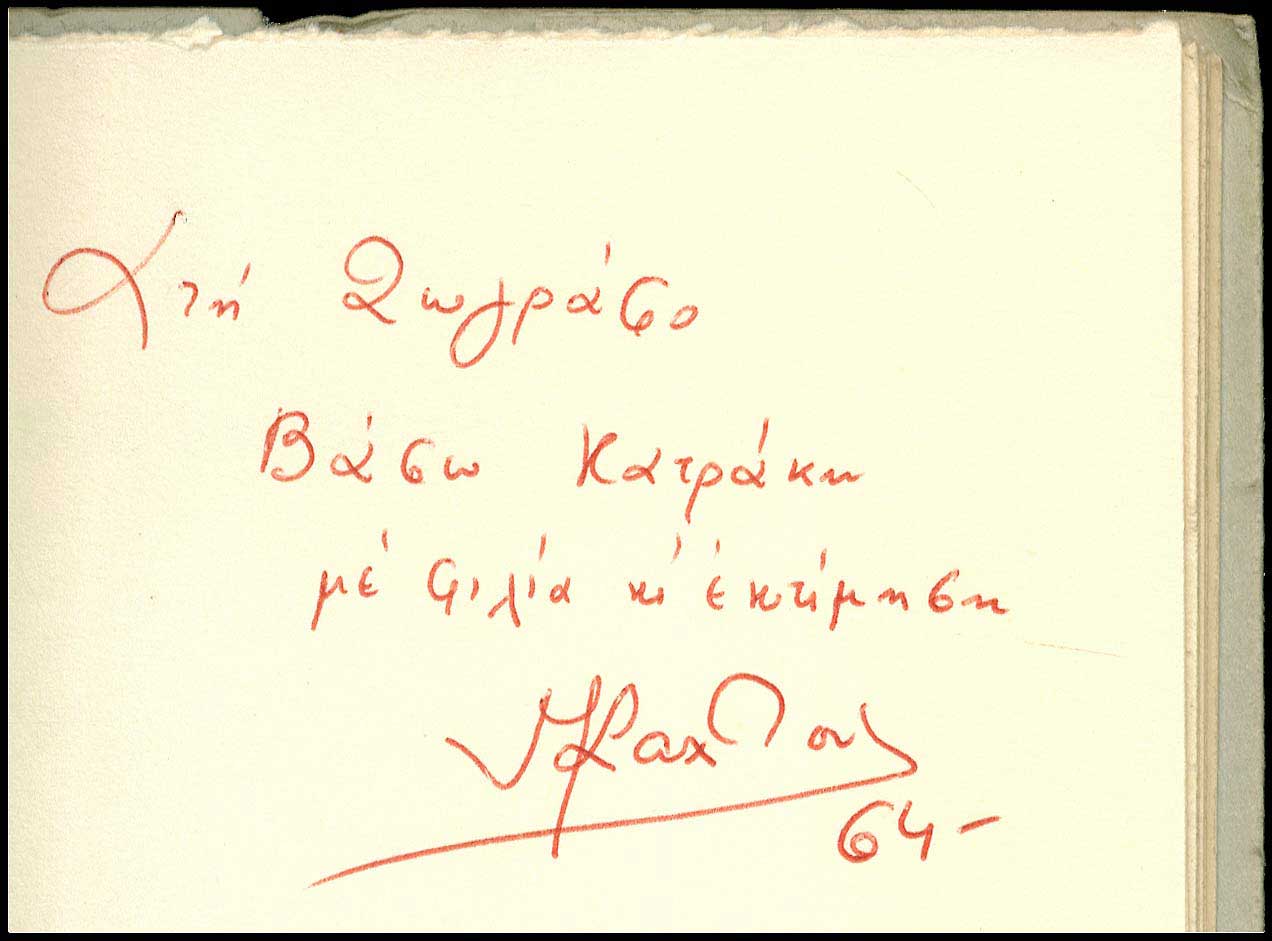 Στή Ζωγράφο
Βάσω Κατράκη
μέ φιλία κι ἐκτίμηση
64-